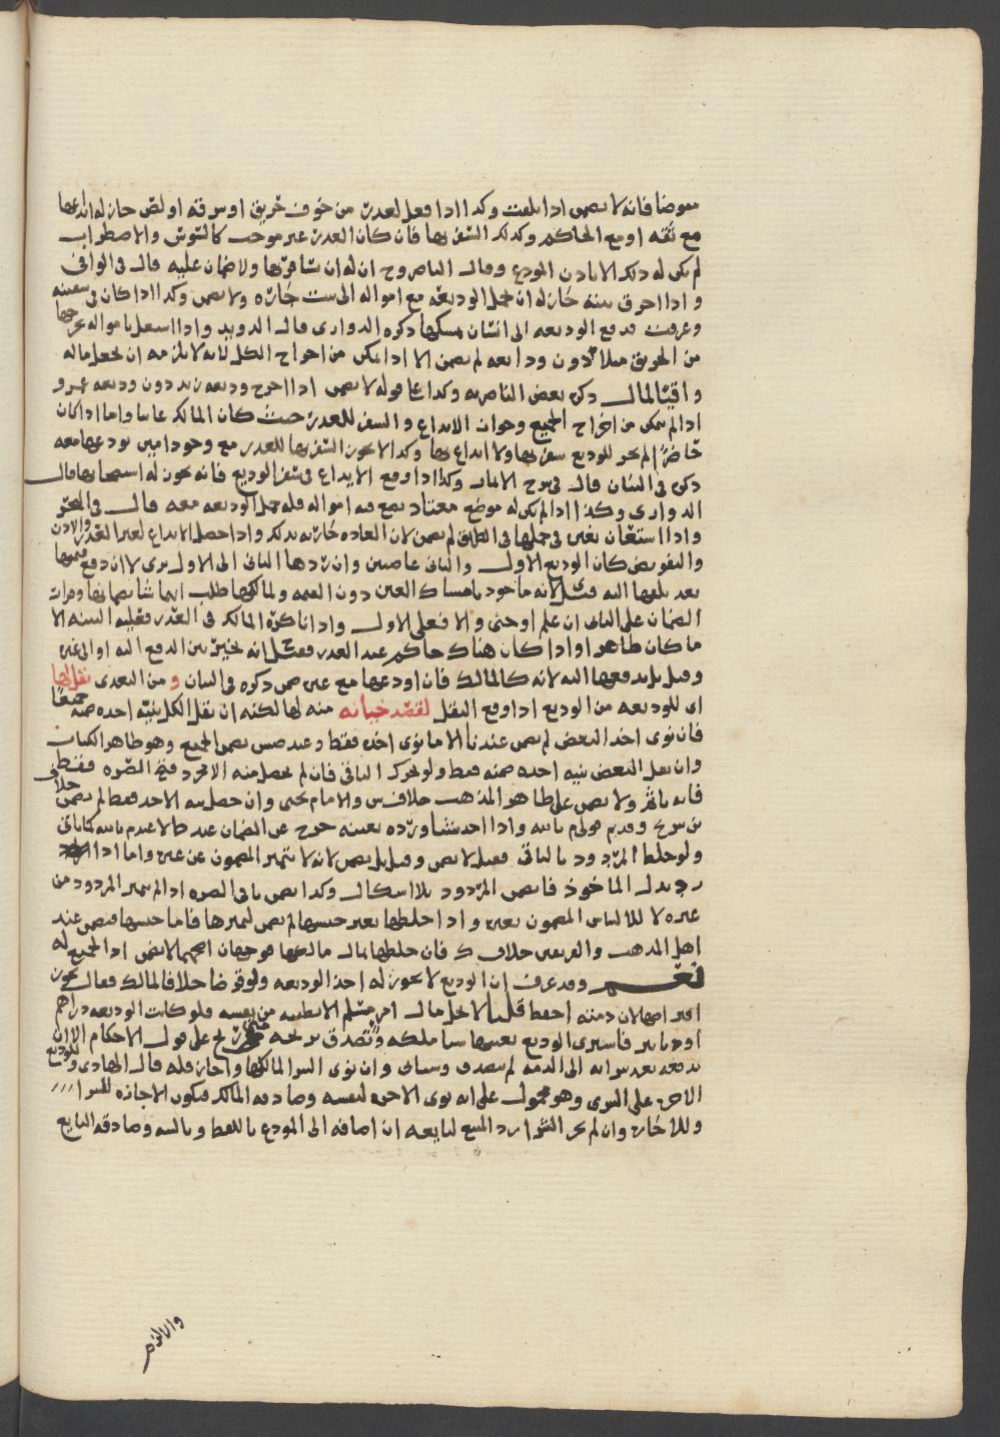 فانه لا يضمن اذا تلفت وكذا اذا فعل لعذر من خوف حريق او سرقه او لص جاز له ايداعها
مع ثقه او مع الحاكم وكذلك السفر بها فان كان العذر غير موجب كالتوش والاضطراب
لم يكن له ذلك الا باذن المودع وقال الناصر وح ان له ان يسافر بها ولا ضمان عليه قال في الوافي
واذا احرق بيته جاز له ان يحمل الوديعه مع امواله الى بيت جاره ولا يضمن وكذا اذا كان في سفينه
وغرقت فدفع الوديعه الى انسان يمسكها ذكره الدواري قال الدويد واذا اشتغل بامواله
من الحريق مثلا دون ودايعه لم يضمن الا اذا تمكن من اخراج الكل لانه لا يلزمه ان يجعل ماله
واقيا لمال ذكره بعض الناصريه وكذا قوله لا يضمن اذا اخرج وديعه زيد دون وديعه عمرو
اذا لم يتمكن من اخراج الجميع وجواز الايداع والسفر للعذر حيث كان المالك غايبا واما اذا كان
حاضرا لم يجز للوديع سفر بها ولا ايداع بها وكذا لا يجوز السفر بها للعذر مع وجود امين يودعها معه
ذكره في البيان قال في وكذا اذا وقع الايداع في سفر الوديع فانه يجوز له استصحابها قال
الدواري وكذا اذا لم يكن له موضع معتاد يضع فيه امواله فله حمل الوديعه معه قال في البحر
واذا استعان بغيره في حملها في الطريق لم يضمن لان العاده جاريه بذلك واذا حصل الايداع لغير العذر والاذن
والتفويض كان الوديع الاول والثاني غاصبين وان ردها الثاني الى الاول برى لا ان دفع قيمتها
بعد تلفها اليه لانه ماخوذ بامساك العين دون القيمه ولمالكها طلب ايهما شا بضمانها وقرار
الضمان على الثاني ان علم او جنى والا فعلى الاول واذا ناكره المالك في العذر فعليه البينه الا
ما كان ظاهرا واذا كان هناك حاكم عند العذر فقيل انه يخير بين الدفع اليه او الى غيره
وقيل بل يدفعها اليه لانه كالمالك فان اودعها مع غيره ضمن ذكره في البيان و من التعدي نقلها
اى للوديعه من الوديع اذا وقع النقل لقصد خيانه منه لها لكنه ان نقل الكل بنيه اخذه ضمنه جميعا
فان نوى اخذ البعض لم يضمن عندنا الا ما نوى اخذه فقط وعند يضمن الجميع وهو ظاهر الكتاب
وان نقل البعض بنيه اخذه ضمنه فقط ولو تحرك الباقي فان لم يحصل منه الا مجرد فتح الصره فقط
فانه ياثم ولا يضمن على ظاهر المذهب خلاف والامام يحيى وان حصل نيه الاخذ فقط لم يضمن خلاف
واذا اخذ شيا ورده بعينه خرج عن الضمان عند
ولو خلط المردود بالباقي فقيل لا يضمن وقيل بل يضمن لانه لا يتميز المضمون عن غيره واما اذا
رد بدل الماخوذ فانه يضمن المردود بلا اشكال وكذا يضمن باقي الصره اذا لم يتميز المردود من
غيره لالتباس المضمون بغيره واذا خلطها بغير جنسها لم يضمن لتميزها فاما جنسها فيضمن عند
اهل المذهب والفريقين خلاف ك فان خلطها بمال مالكها فوجهان اصحهما لا يضمن اذ الجميع له
وقد عرفت ان الوديع لا يجوز له اخذ الوديعه ولو قرضا خلافا لمالك فقال يجوز
اذ في ذمته احفظ قلنا لا يحل مال امرئ مسلم الا بطيبه من نفسه فلو كانت الوديعه دراهم
او دنانير فاشترى الوديع بعينها شيا ملكه وتصدق بربحه على قول الاحكام الا ان
يدفعه بعد شرائه الى الذمه لم يتصدق وان نوى الشرا لمالكها واجاز فله قال الهادي وللوديع
الاجره على الشرى وهو محمول على انه نوى الاجره لنفسه وصادقه المالك فيكون الاجازه للشرا
وللاجاره وان لم يجز الشرا رد المبيع لبايعه ان اضافه الى المودع باللفظ وبالنيه وصادقه البايع
والالزم